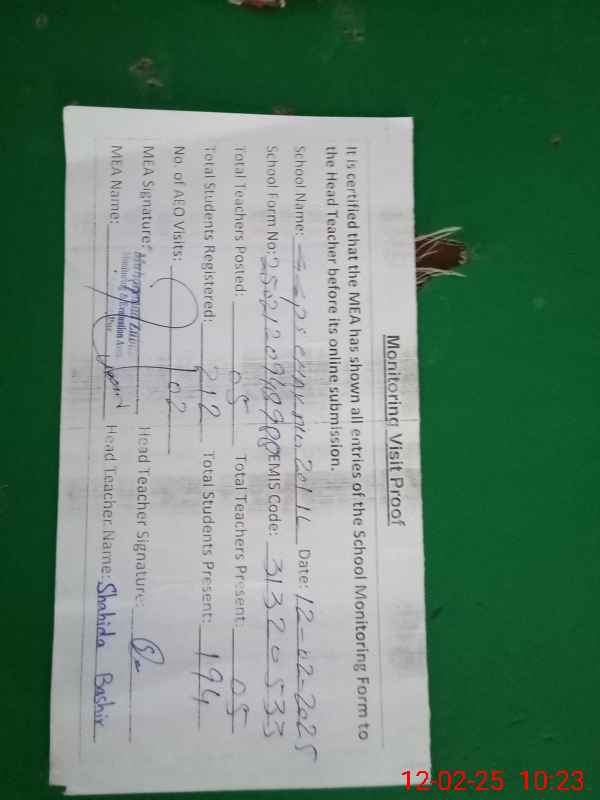 Monitoring Visit Proof
It is certified that the MEA has shown all entries of the School Monitoring Form to
the Head Teacher before its online submission.
School Name: Date: 12-02-2025
School Form No: EMIS Code: 31320533
Total Teachers Posted: 05 Total Teachers Present: 05
Total Students Registered: 212 Total Students Present: 194
No. of AEO Visits: 02
MEA Signature: Head Teacher Signature:
MEA Name: Head Teacher Name: Shahida Bashir
12-02-25 10:23